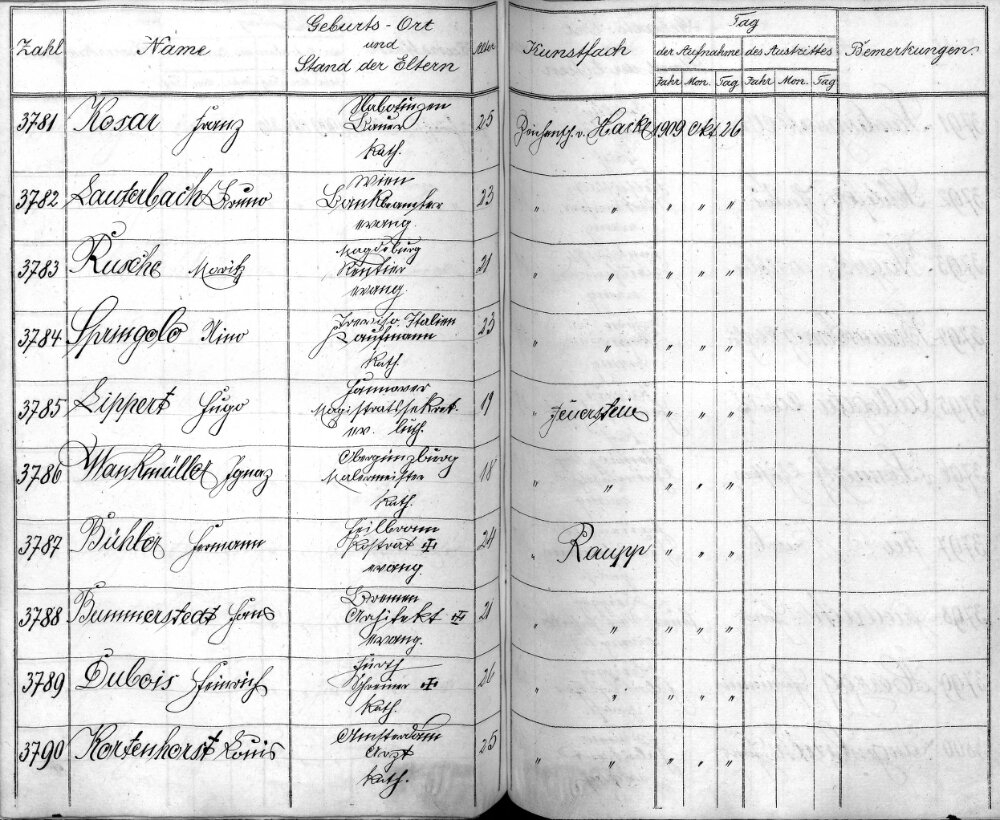 Zahl Name Geburts-Ort und Stand der Eltern Alter Kunstfach Tag der Aufnahme des Austrittes Bemerkungen
Jahr Mon. Tag Jahr Mon. Tag
3781 Kosar Franz 25 Zeichensch. v. Hackl 1909 Okt. 26
Bauer
Kath.
3782 Lauterbach Bruno Wien 23 " " " " "
Bankbeamter
evang.
3783 Rusche Moritz Magdeburg 21 " " " " "
Rentier
evang.
3784 Springolo Nino Treviso, Italien 23 " " " " "
Kaufmann
Kath.
3785 Lippert Hugo Hannover 19 " Feuerstein " " "
Magistratssekret.
ev. luth.
3786 Wankmüller Ignaz Obergünzburg 18 " " " " "
Malermeister
Kath.
3787 Bühler Hermann Heilbronn 24 " Raupp " " "
evang.
3788 Bummerstedt Hans Bremen 21 " " " " "
Architekt ✠
evang.
3789 Dubois Heinrich Fürth 26 " " " " "
Schreiner ✠
Kath.
3790 Kortenhorst Louis Amsterdam 25 " " " " "
Arzt
Kath.